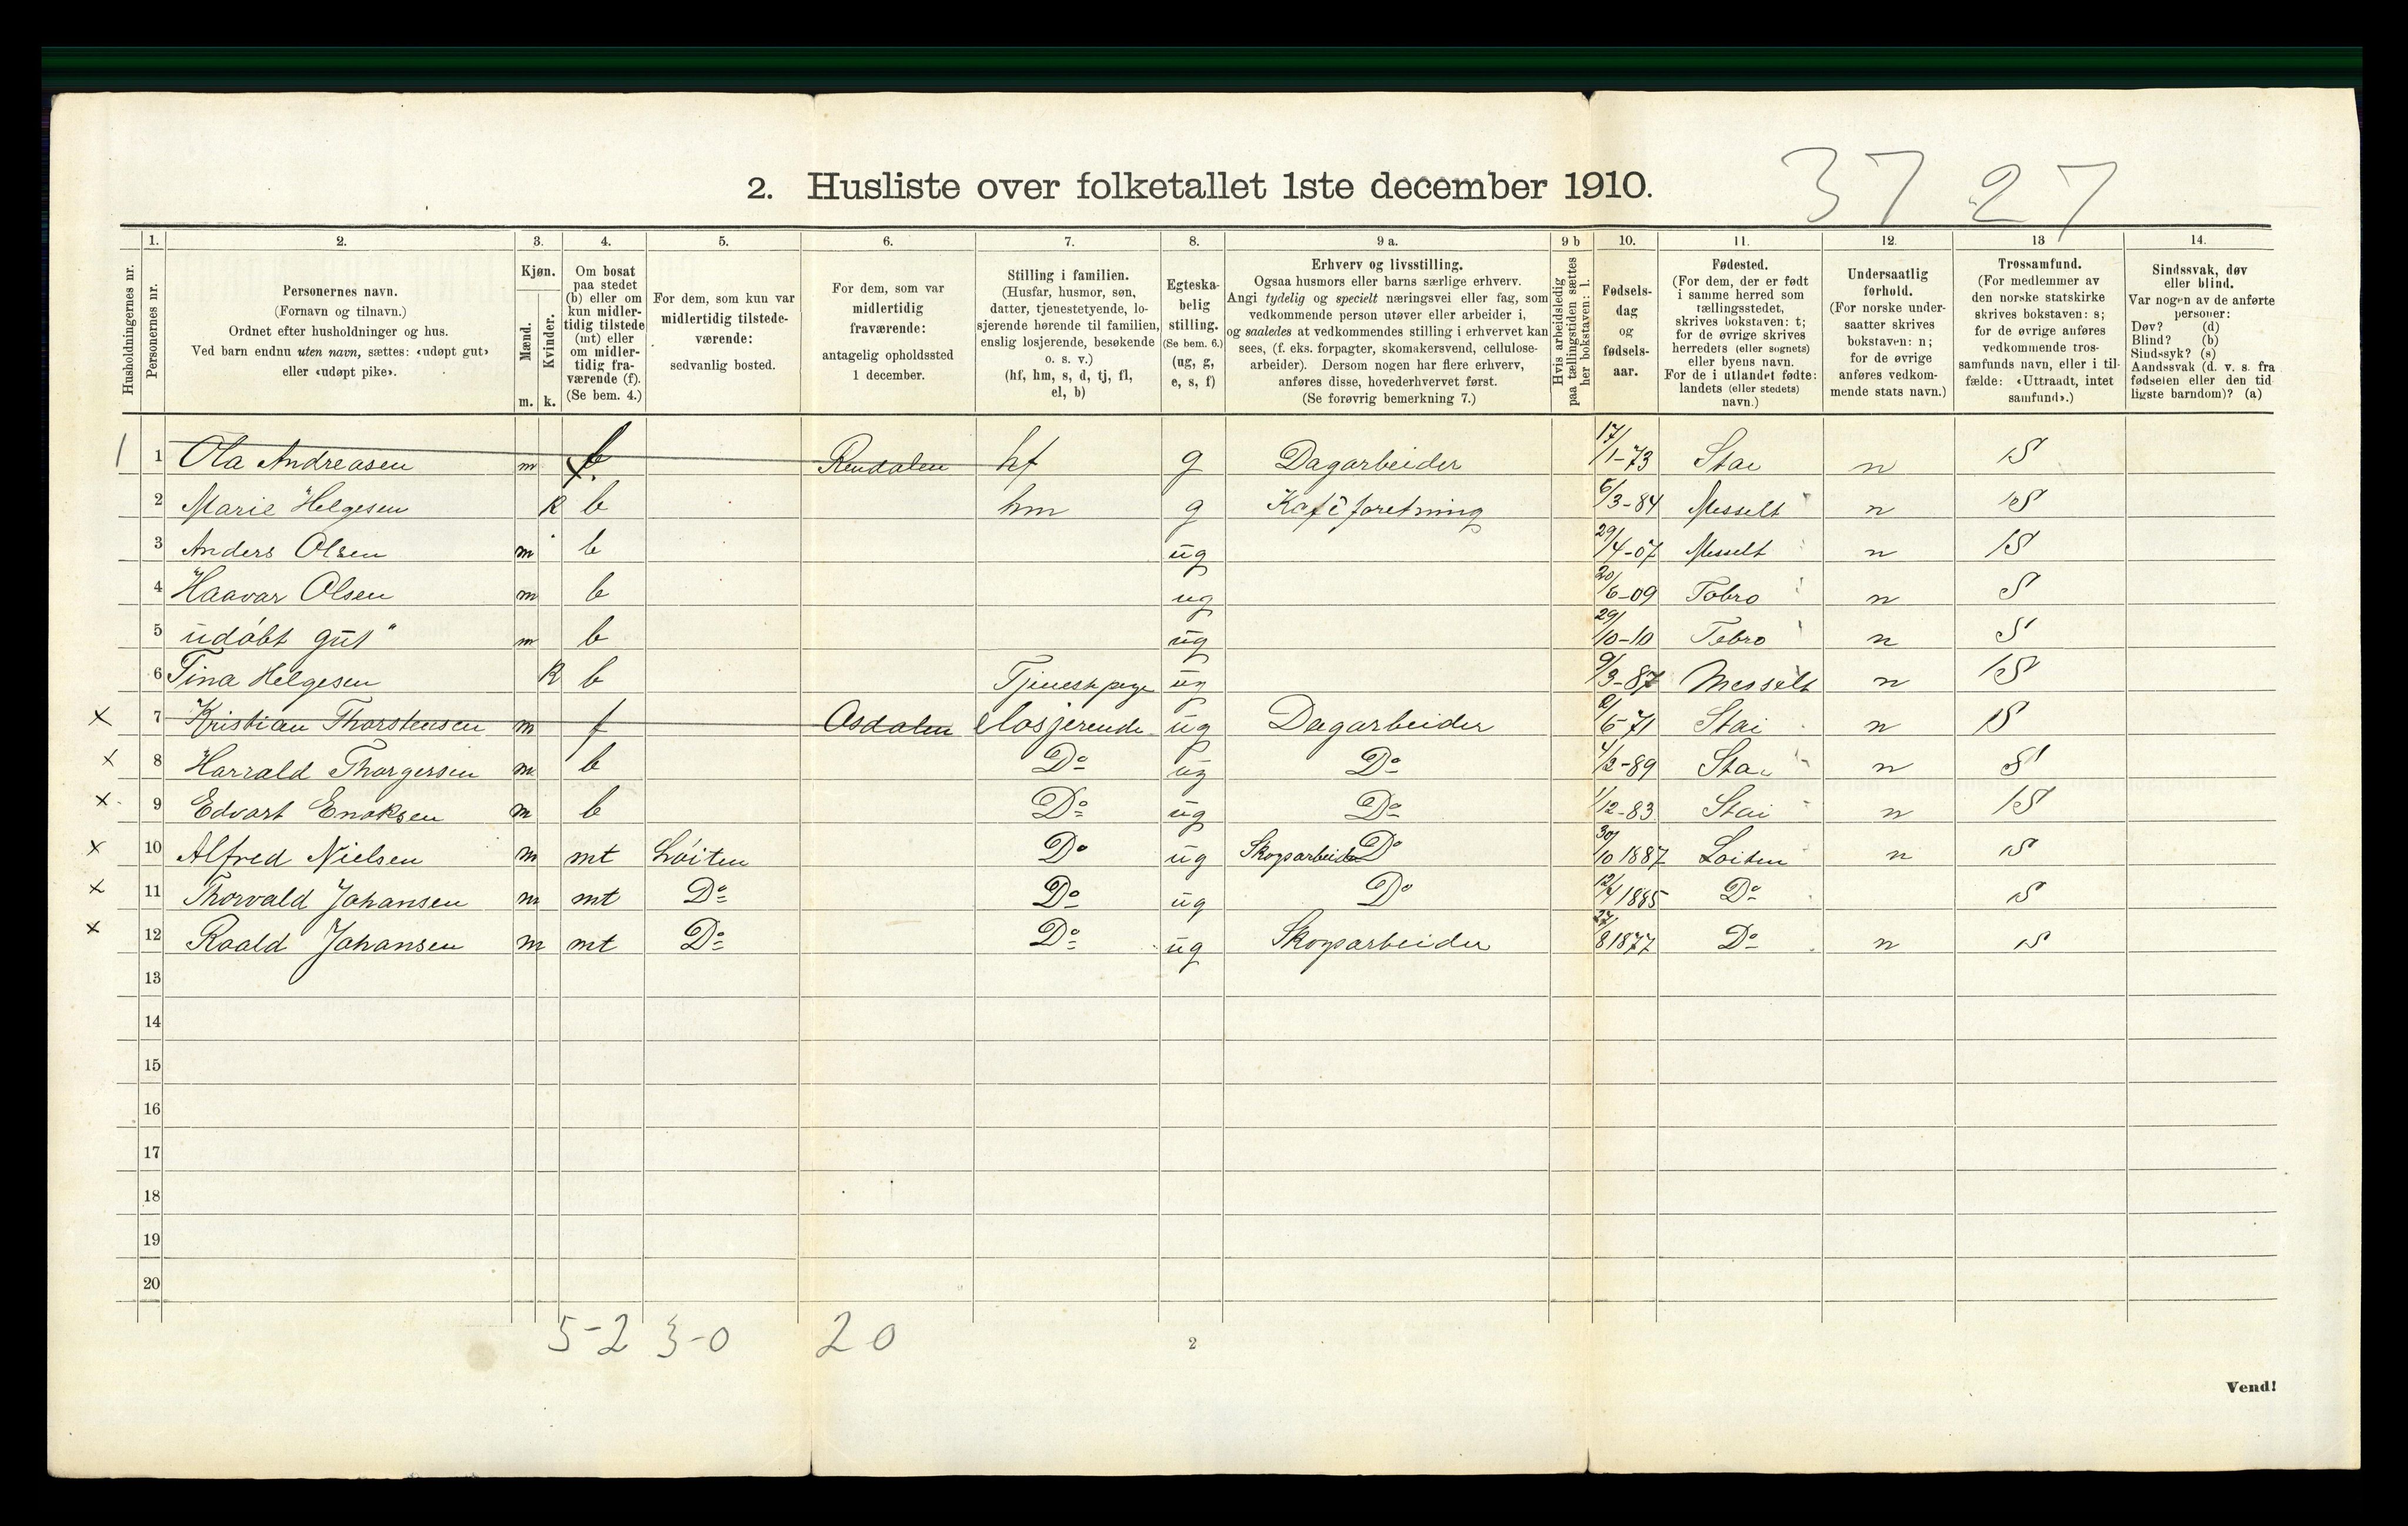 37 27
2. Husliste over folketallet 1ste december 1910.
1. 2. 3. 4. 5. 6. 7. 8. 9 a. 9 b 10. 11. 12. 13 14.
Husholdningernes nr.
Personernes nr.
Personernes navn.
(Fornavn og tilnavn.)
Ordnet efter husholdninger og hus.
Ved barn endnu uten navn, sættes: «udøpt gut»
eller «udøpt pike».
Kjøn.
Mænd.
Kvinder.
m. k.
Om bosat
paa stedet
(b) eller om
kun midler-
tidig tilstede
(mt) eller
om midler-
tidig fra-
værende (f).
(Se bem. 4.)
For dem, som kun var
midlertidig tilstede-
værende:
sedvanlig bosted.
For dem, som var
midlertidig
fraværende:
antagelig opholdssted
1 december.
Stilling i familien.
(Husfar, husmor, søn,
datter, tjenestetyende, lo-
sjerende hørende til familien,
enslig losjerende, besøkende
o. s. v.)
(hf, hm, s, d, tj, fl,
el, b)
Egteska-
belig
stilling.
(Se bem. 6.)
(ug, g,
e, s, f)
Erhverv og livsstilling.
Ogsaa husmors eller barns særlige erhverv.
Angi tydelig og specielt næringsvei eller fag, som
vedkommende person utøver eller arbeider i,
og saaledes at vedkommendes stilling i erhvervet kan
sees, (f. eks. forpagter, skomakersvend, cellulose-
arbeider). Dersom nogen har flere erhverv,
anføres disse, hovederhvervet først.
(Se forøvrig bemerkning 7.)
Hvis arbeidsledig
paa tællingstiden sættes
her bokstaven: l.
Fødsels-
dag
og
fødsels-
aar.
Fødested.
(For dem, der er født
i samme herred som
tællingsstedet,
skrives bokstaven: t;
for de øvrige skrives
herredets (eller sognets)
eller byens navn.
For de i utlandet fødte:
landets (eller stedets)
navn.)
Undersaatlig
forhold.
(For norske under-
saatter skrives
bokstaven: n;
for de øvrige
anføres vedkom-
mende stats navn.)
Trossamfund.
(For medlemmer av
den norske statskirke
skrives bokstaven: s;
for de øvrige anføres
vedkommende tros-
samfunds navn, eller i til-
fælde: «Uttraadt, intet
samfund».)
Sindssvak, døv
eller blind.
Var nogen av de anførte
personer:
Døv? (d)
Blind? (b)
Sindssyk? (s)
Aandssvak (d. v. s. fra
fødselen eller den tid-
ligste barndom)? (a)
1 1 Ola Andreasen m f. Rendalen hf g Dagarbeider 17/1-73 Stai n S
2 Marie Helgesen k b hm g Kaféforetning 6/3-84 Messelt n S
3 Anders Olsen m b ug 29/4-07 Messelt n S
4 Haavar Olsen m b ug 20/6-09 Tobro n S
5 udøbt gut" m b ug 29/10-10 Tobro n S
6 Tina Helgesen k b ug 9/3-87 Messelt n S
x 7 Kristian Thorstensen m f Osdalen elosjerende ug Dagarbeider Stai n S
x 8 Harrald Thorgersen m b Do ug Do 4/2-89 Stai n S
x 9 Edvart Enoksen m b Do ug Do 1/12-83 Stai n S
x 10 Alfred Nielsen m mt Løiten Do ug Skogsarbeider Do 30/10 1887 Løiten n S
x 11 Thorvald Johansen m mt Do Do ug Do 12/4 1885 Do S
x 12 Roald Johansen m mt Do Do ug Skogsarbeider 27/8 1877 Do n S
13
14
15
16
17
18
19
20
5-2 3-0 2 0
2
Vend!